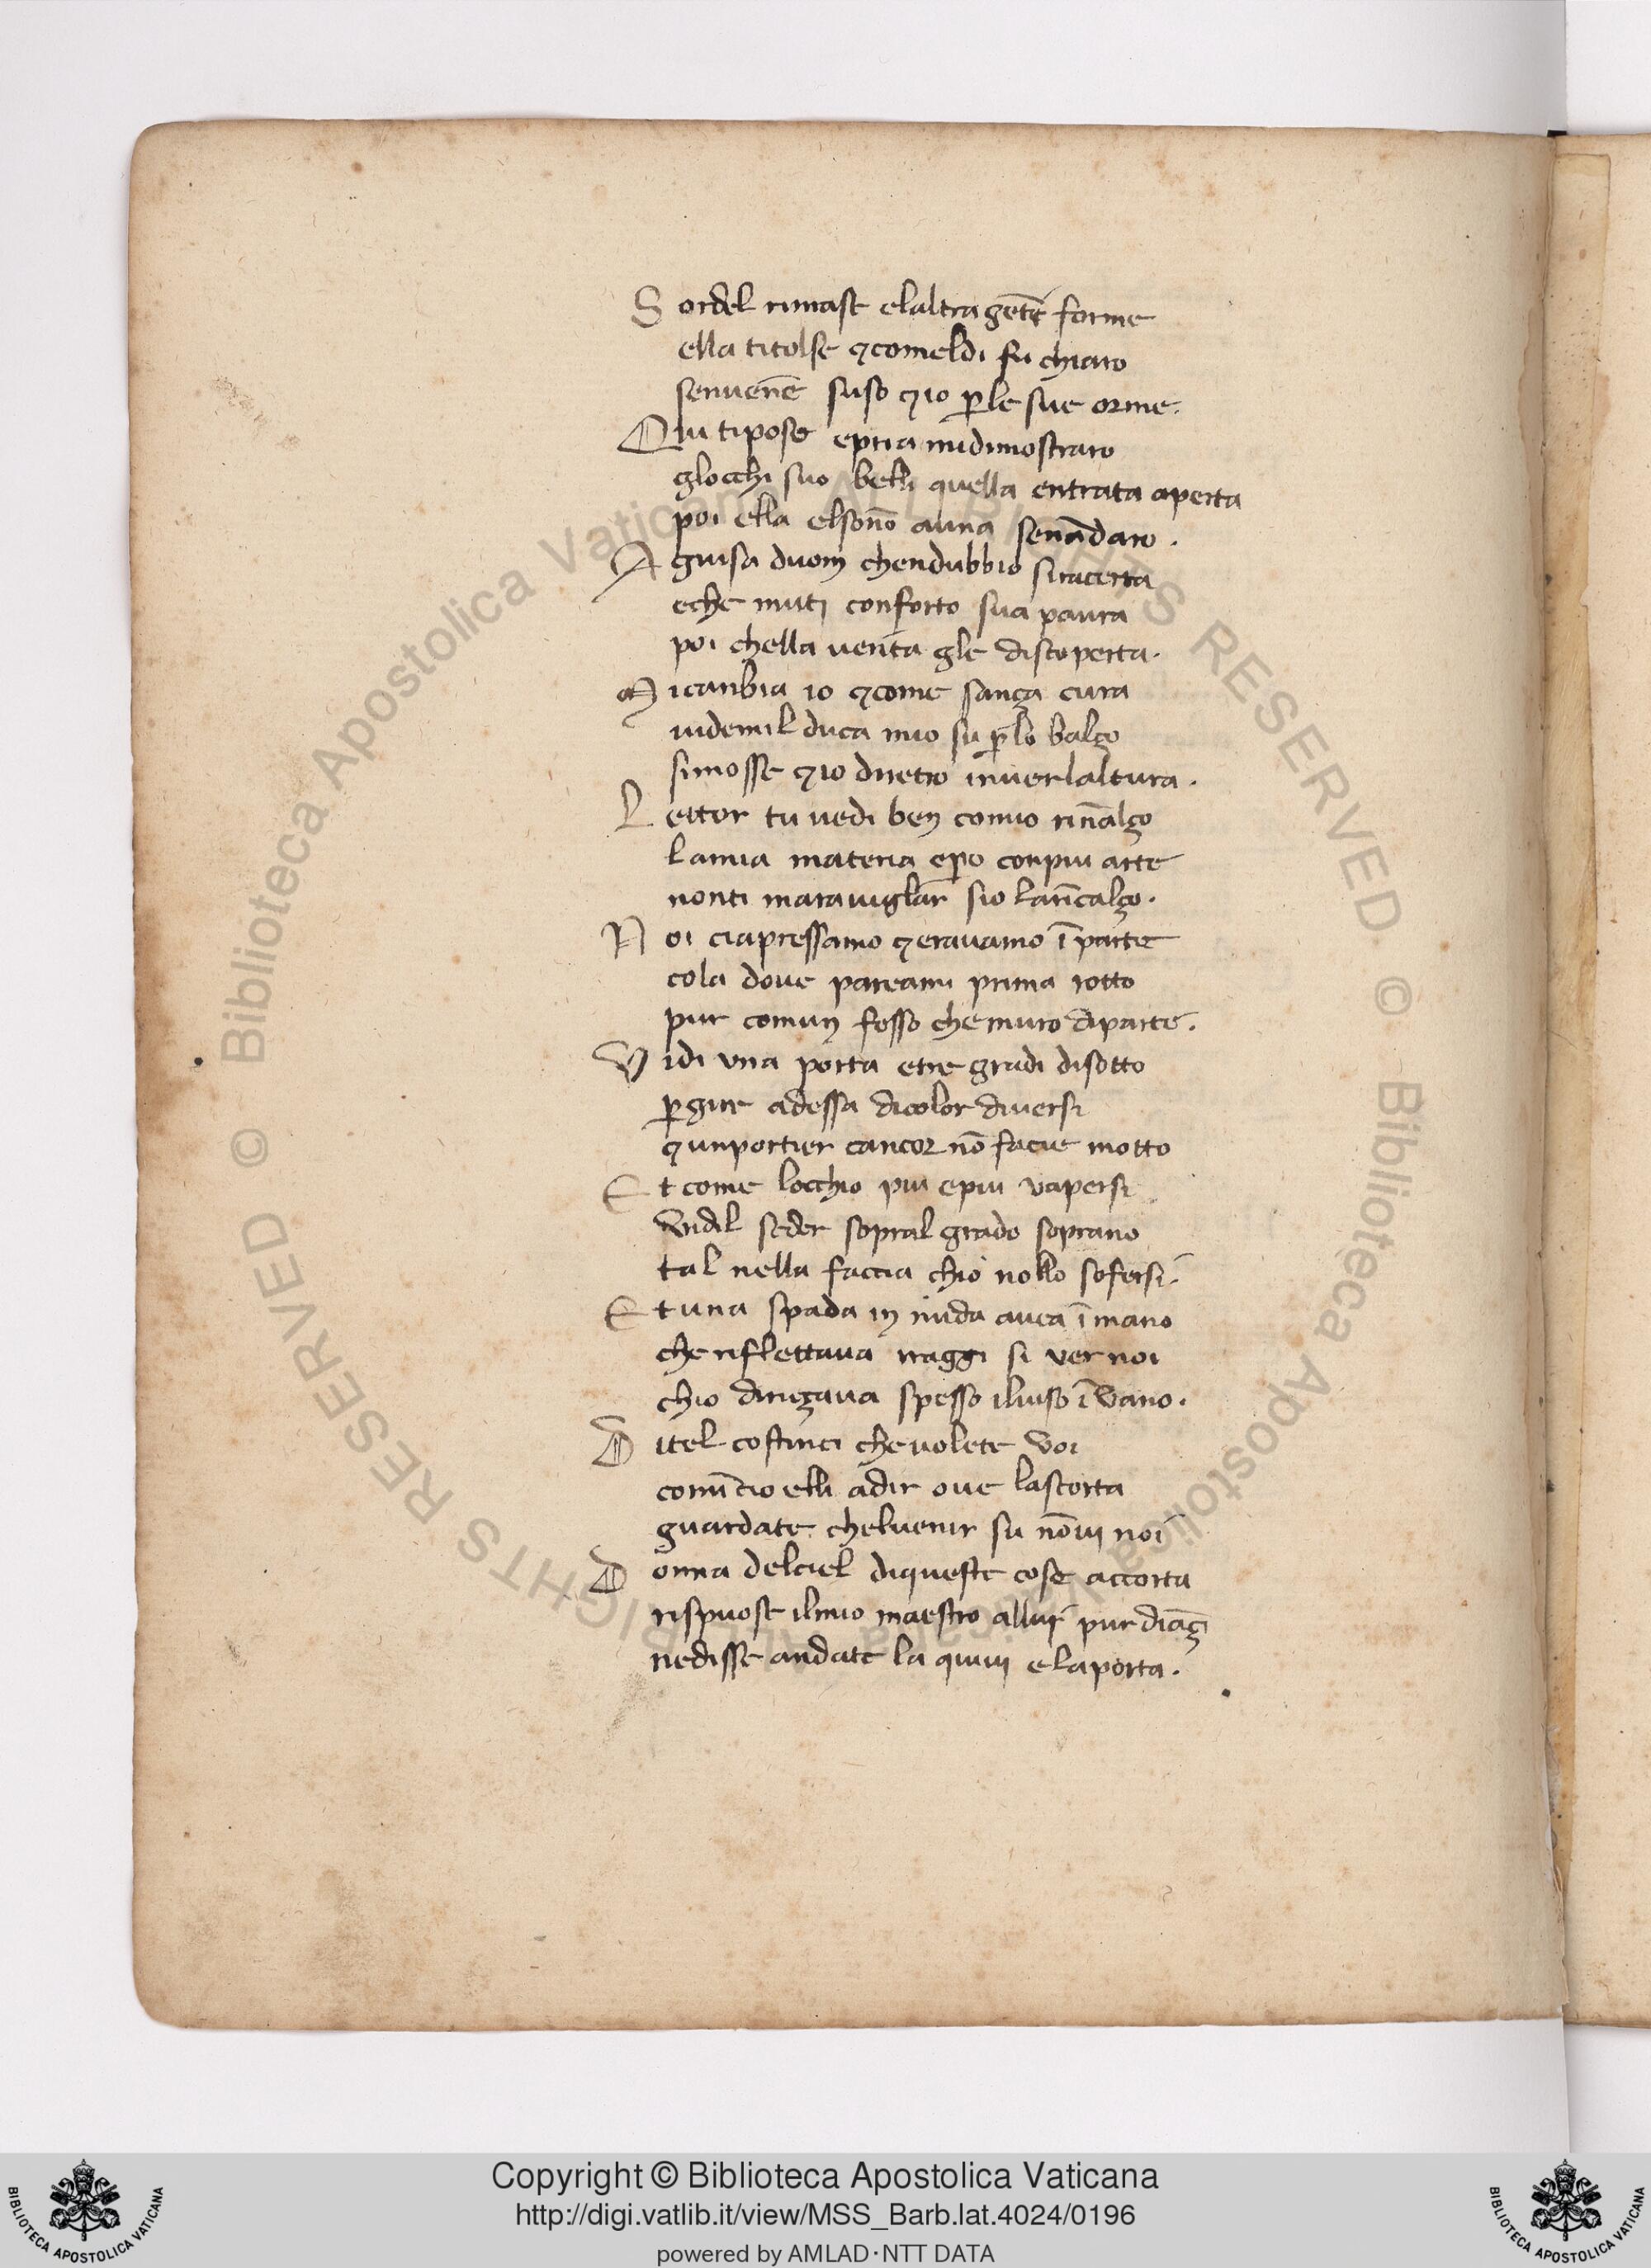 Sordel rimase elaltra gẽte forme
ella titolse ⁊comeldi fu chiaro
senuenẽe suso ⁊io ꝑle sue orme.
Qui tipose epria midimostraro
glocchi suo belli quella entrata aperta
poi ella elsonno auna senãdaro.
A guisa duom chendubbio siracerta
eche muti conforto sua paura
poi chella uerita gle discoperta.
Micanbia io ⁊come sança cura
uidemil duca mio su ꝑlo balço
simosse ⁊io dirietro inuerlaltura.
Lettor tu uedi ben comio rinnalço
lamia materia eꝑo conpiu arte
nonti marauiglar sio larincalço.
Noi ciapressamo ⁊erauamo ĩ parte
cola doue pareami prima rotto
pur comun fosso che muro diparte.
Vidi vna porta etre gradi disotto
ꝑgire adessa dicolor diuersi
⁊unportier cancor nõ facie motto
Et come locchio piu epiu vapersi
vidil seder sopral grado soprano
tal nella faccia chio nollo sofersi.
Et una spada in nuda auea ĩ mano
che riflettaua iraggi si ver noi
chio diriçaua spesso iluiso ĩ vano.
Ditel costinci che uolete voi
comĩcio elli adir oue lascorta
guardate cheluenir su nõui noi
Donna delciel diqueste cose accorta
rispuose ilmio maestro allui pur diãç
nedisse andate la quiui e laporta.
© Biblioteca Apostolica Vaticana ALL RIGHTS RESERVED
© Biblioteca Apostolica Vaticana ALL RIGHTS RESERVED
Copyright © Biblioteca Apostolica Vaticana
http://digi.vatlib.it/view/MSS_Barb.lat.4024/0196
powered by AMLAD·NTT DATA
BIBLIOTECA APOSTOLICA VATICANA
BIBLIOTECA APOSTOLICA VATICANA